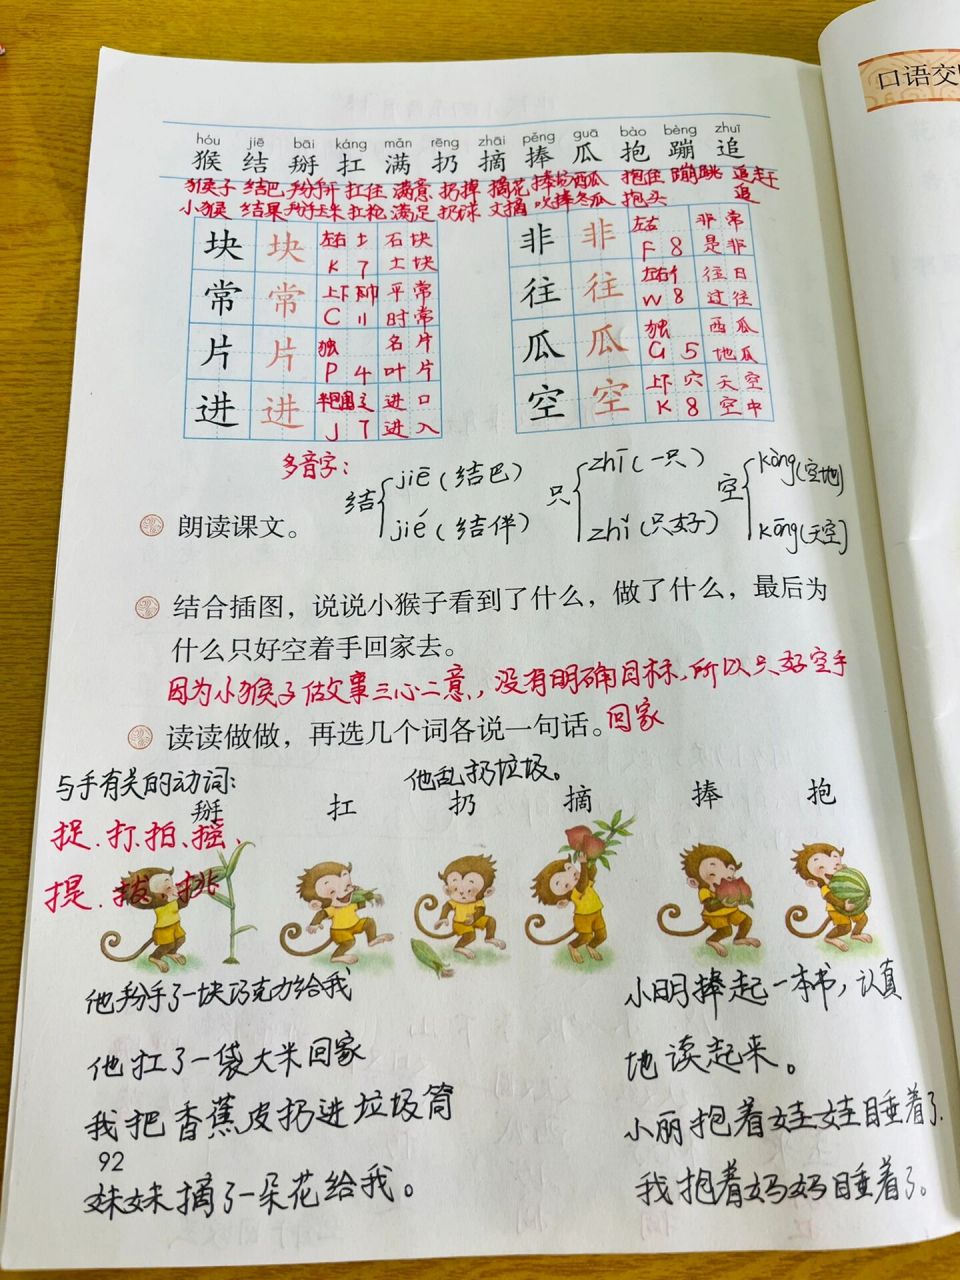 口语交
hóu jiē bāi káng mǎn rēng zhāi pěng guā bào bèng zhuī
猴 结 掰 扛 满 扔 摘 捧 瓜 抱 蹦 追
猴子 结巴 掰开 扛住 满意 扔掉 摘花 捧场 西瓜 抱住 蹦跳 追赶
小猴 结果 掰玉米 扛枪 满足 扔球 文摘 吹捧 冬瓜 抱头 追
块 块 左右 土 石块 非 非 左右 非常
K 7 土块 F 8 是非
常 常 上下 巾 平常 往 往 左右 彳 往日
C 11 时常 W 8 过往
片 片 独 名片 瓜 瓜 独 西瓜
P 4 叶片 G 5 地瓜
进 进 半包围 辶 进口 空 空 上下 穴 天空
J 7 进入 K 8 空中
多音字:
结 jiē(结巴) 只 zhī(一只) 空 kòng(空地)
jié(结伴) zhǐ(只好) kōng(天空)
朗读课文。
结合插图，说说小猴子看到了什么，做了什么，最后为
什么只好空着手回家去。
因为小猴子做事三心二意，没有明确目标，所以只好空手
回家
读读做做，再选几个词各说一句话。
与手有关的动词: 他乱扔垃圾。
掰 扛 扔 摘 捧 抱
捉、打、拍、摇、
提、拔、挑
他掰手了一块巧克力给我
小明捧起一本书，认真
他扛了一袋大米回家
地读起来。
我把香蕉皮扔进垃圾筒
小丽抱着娃娃睡着了.
92
妹妹摘了一朵花给我。
我抱着妈妈睡着了。